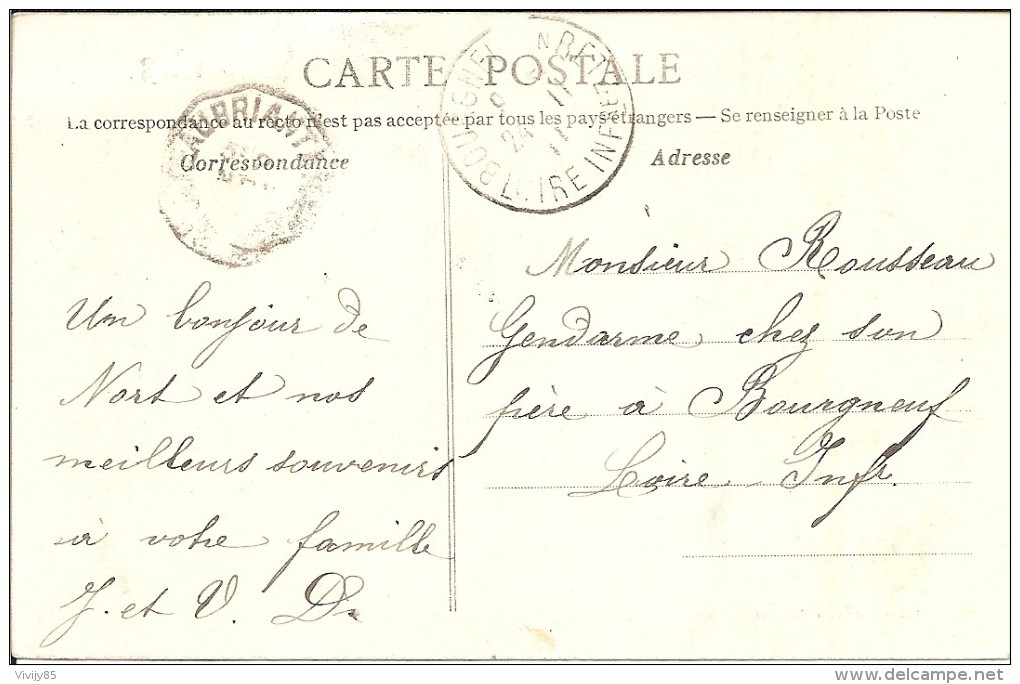 CARTE POSTALE
La correspondance au recto n'est pas acceptée par tous les pays étrangers — Se renseigner à la Poste
Correspondance
Adresse
Un bonjour de
Nort et nos
meilleurs souvenirs
à votre famille
J. et V. D
Monsieur Rousseau
Gendarme chez son
père à Bourgneuf
Loire Infr.
LOIRE INFRE
24
11
Vivijy85
delcampe.net